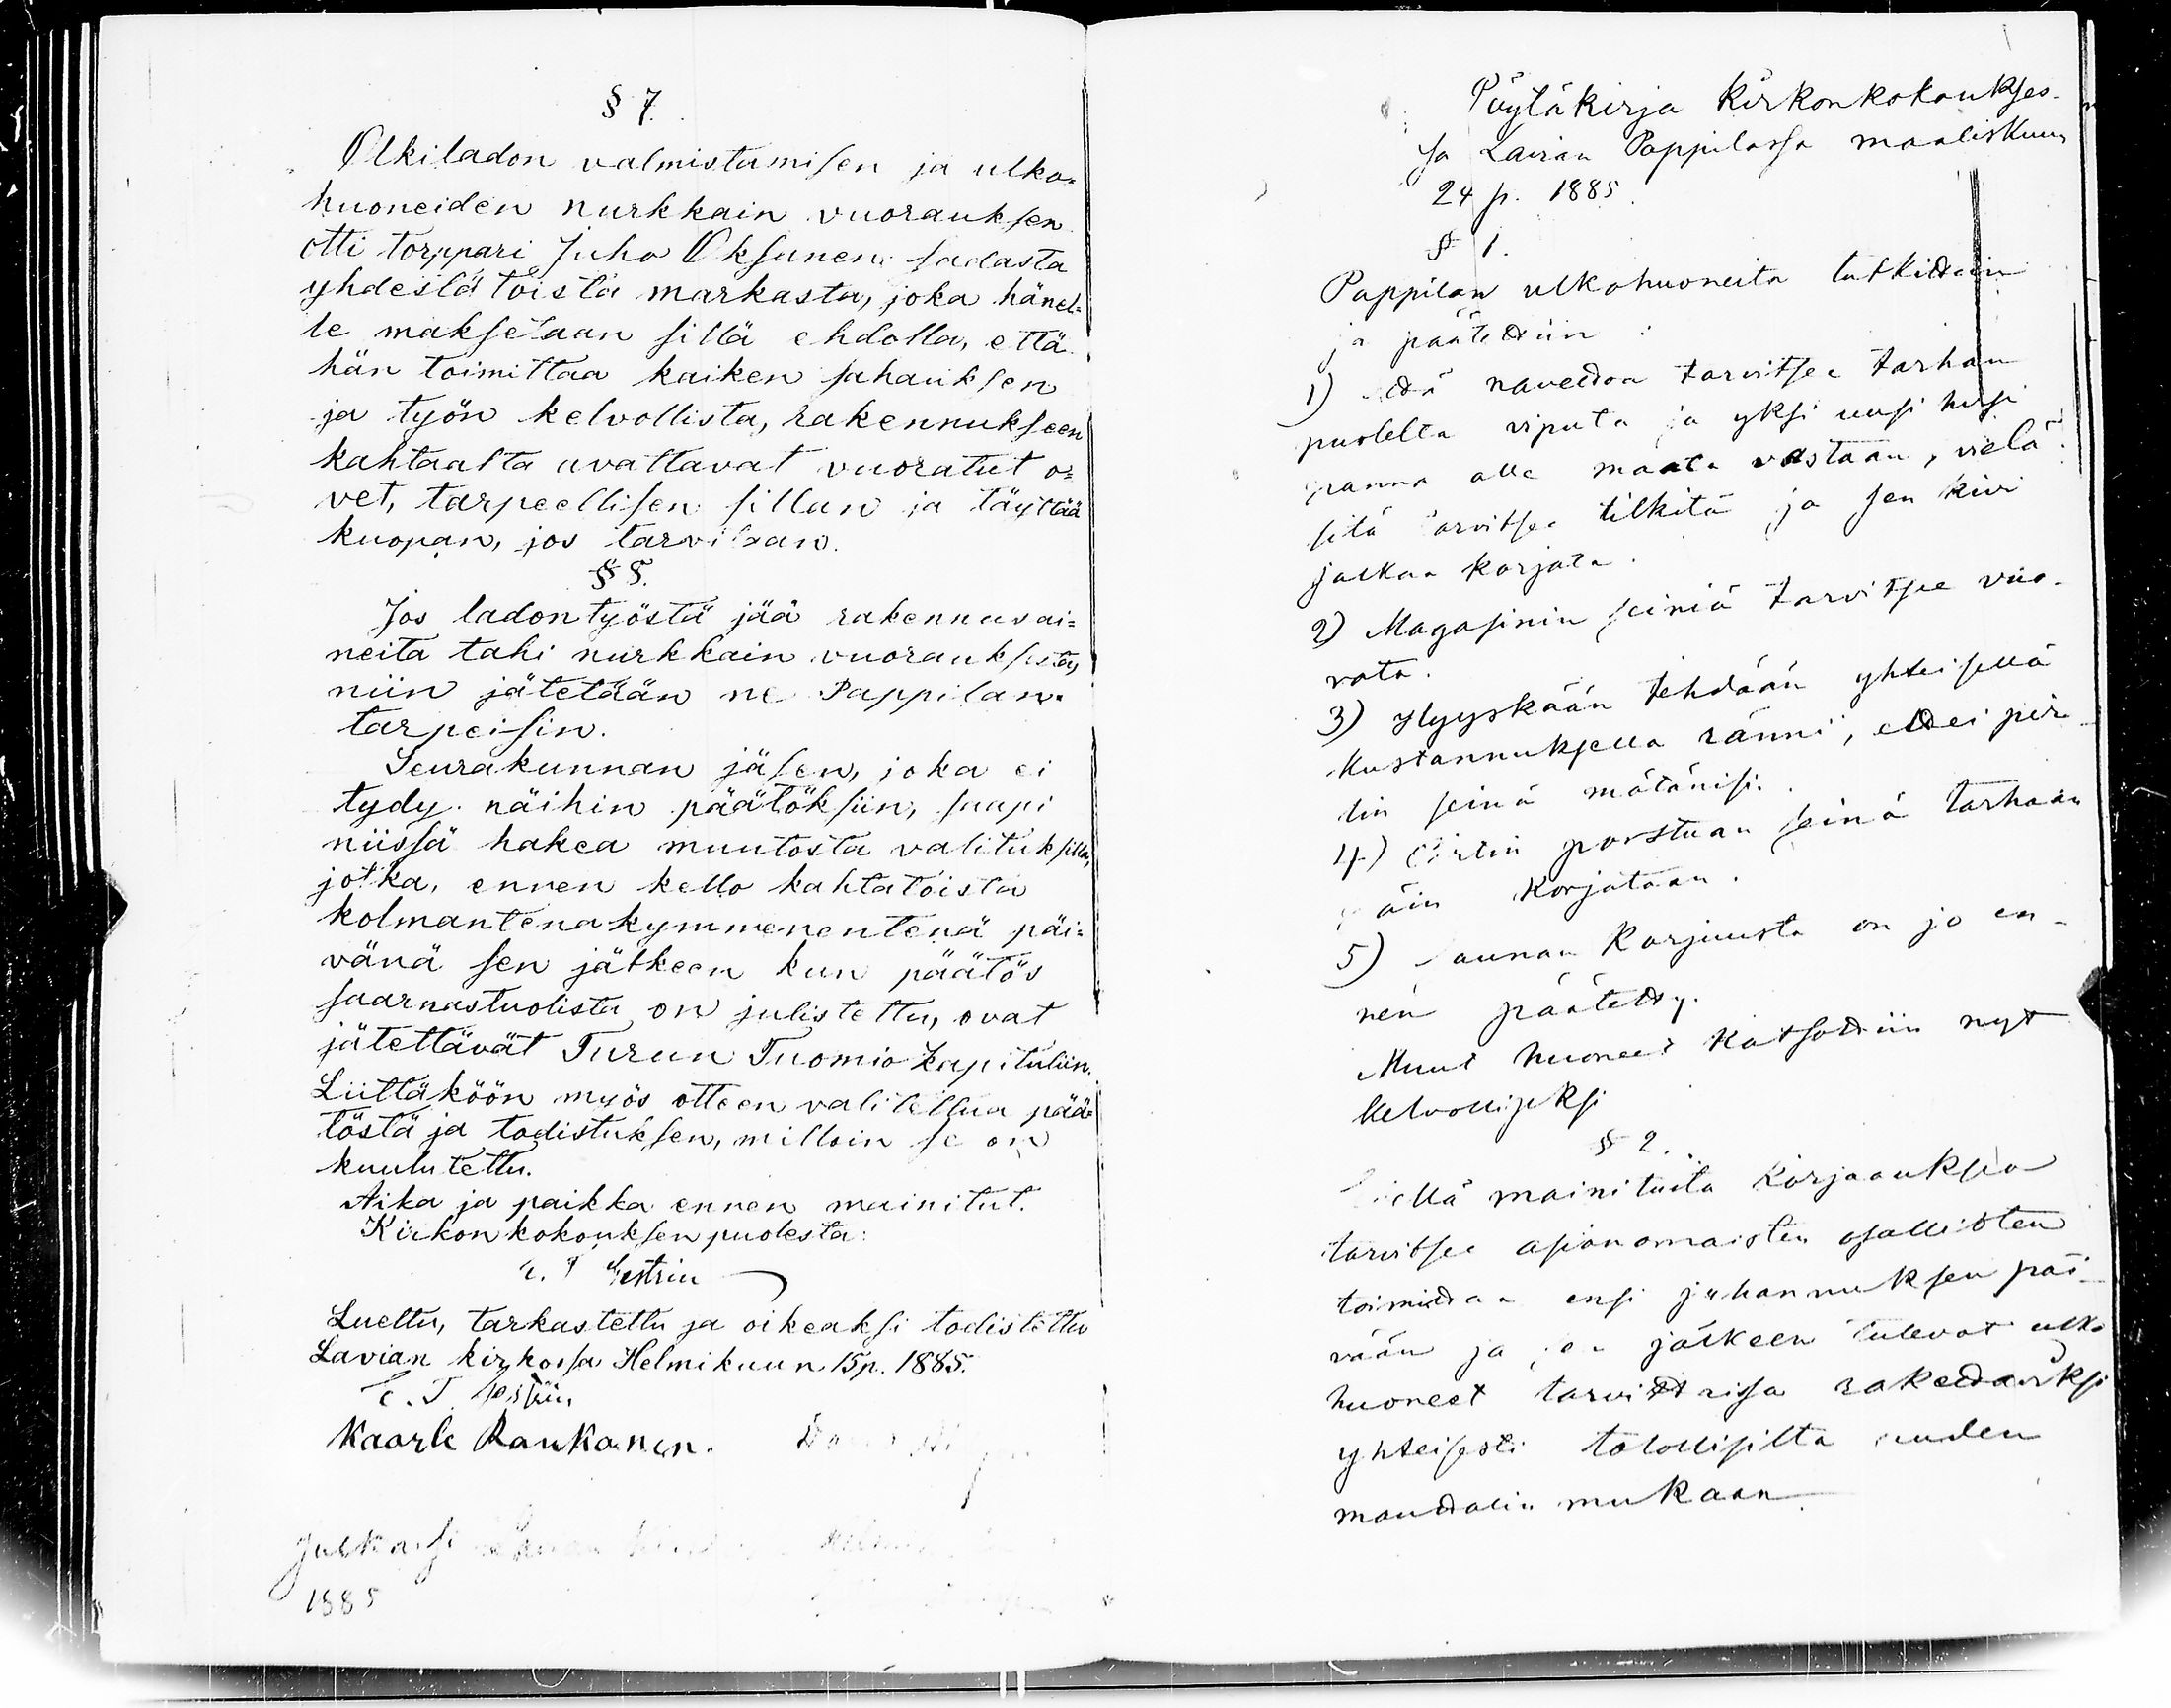 § 7.
Olkiladon valmistamisen ja ulko-
huoneiden nurkkain vuorauksen
otti torppari Juho Oksanen sadasta
yhdestä toista markasta, joka hänel-
le maksetaan sillä ehdolla, että
hän toimittaa kaiken sahauksen
ja työn kelvollista, rakennukseen
kahtaalta avattavat vuoratut o-
vet, tarpeellisen sillan ja täyttää
kuopan, jos tarvitaan.
§ 8.
Jos ladon työstä jää rakennusai-
neita tahi nurkkain vuorauksista,
niin jätetään ne Pappilan
tarpeisin.
Seurakunnan jäsen, joka ei
tydy näihin päätöksiin, saapi
niissä hakea muutosta valituksilla,
jotka, ennen kello kahtatoista
kolmantenakymmenentenä päi-
vänä sen jälkeen kun päätös
saarnastuolista on julistettu, ovat
jätettävät Turun Tuomiokapituliin.
Liittäköön myös otteen valitellun pää-
töstä ja todistuksen, milloin se on
kuulutettu.
Aika ja paikka ennen mainitut.
Kirkonkokouksen puolesta:
Gestrin
Luettu, tarkastettu ja oikeaksi todistettu
Lavian kirkossa Helmikuun 15 p. 1885.
Kaarle Raukanen.
Julkaisi
1885
Pöytäkirja Kirkonkokoukses-
sa Lavian Pappilassa maaliskuun
24 p. 1885.
§ 1.
Pappilan ulkohuoneita tutkittiin
ja päätettiin :
1) että navettaa tarvitsee tarhan
puolelta viputa ja yksi uusi hirsi
panna alle maata vastaan, vielä
sitä tarvitsee tilkitä ja sen kivi
jalkaa korjata.
2) Magasinin seiniä tarvitsee vuo-
rata.
3) Hyyskään tehdään yhteisellä
kustannuksella ränni, ettei pir-
tin seinä mätänisi.
4) Pirtin porstuan seinä tarhaan
päin korjataan.
5) Saunan Korjuusta on jo en-
nen päätetty.
Muut huoneet katsottiin nyt
kelvollisiksi
§ 2.
mainituita korjauksia
tarvitsee asianomaisten osallisten
toimittaa ensi juhannuksen päi-
vään ja sen jälkeen tulevat ulko
huoneet tarvittaissa rakettaviksi
yhteisesti talollisilta uuden
manttalin mukaan.